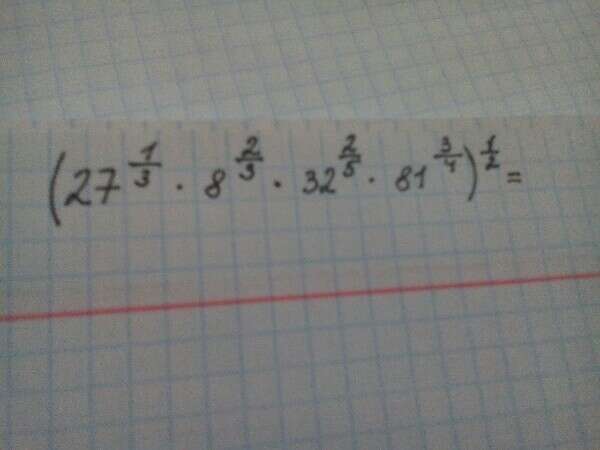 (27^{\frac{1}{3}} · 8^{\frac{2}{3}} · 32^{\frac{2}{5}} · 81^{\frac{3}{4}})^{\frac{1}{2}} =